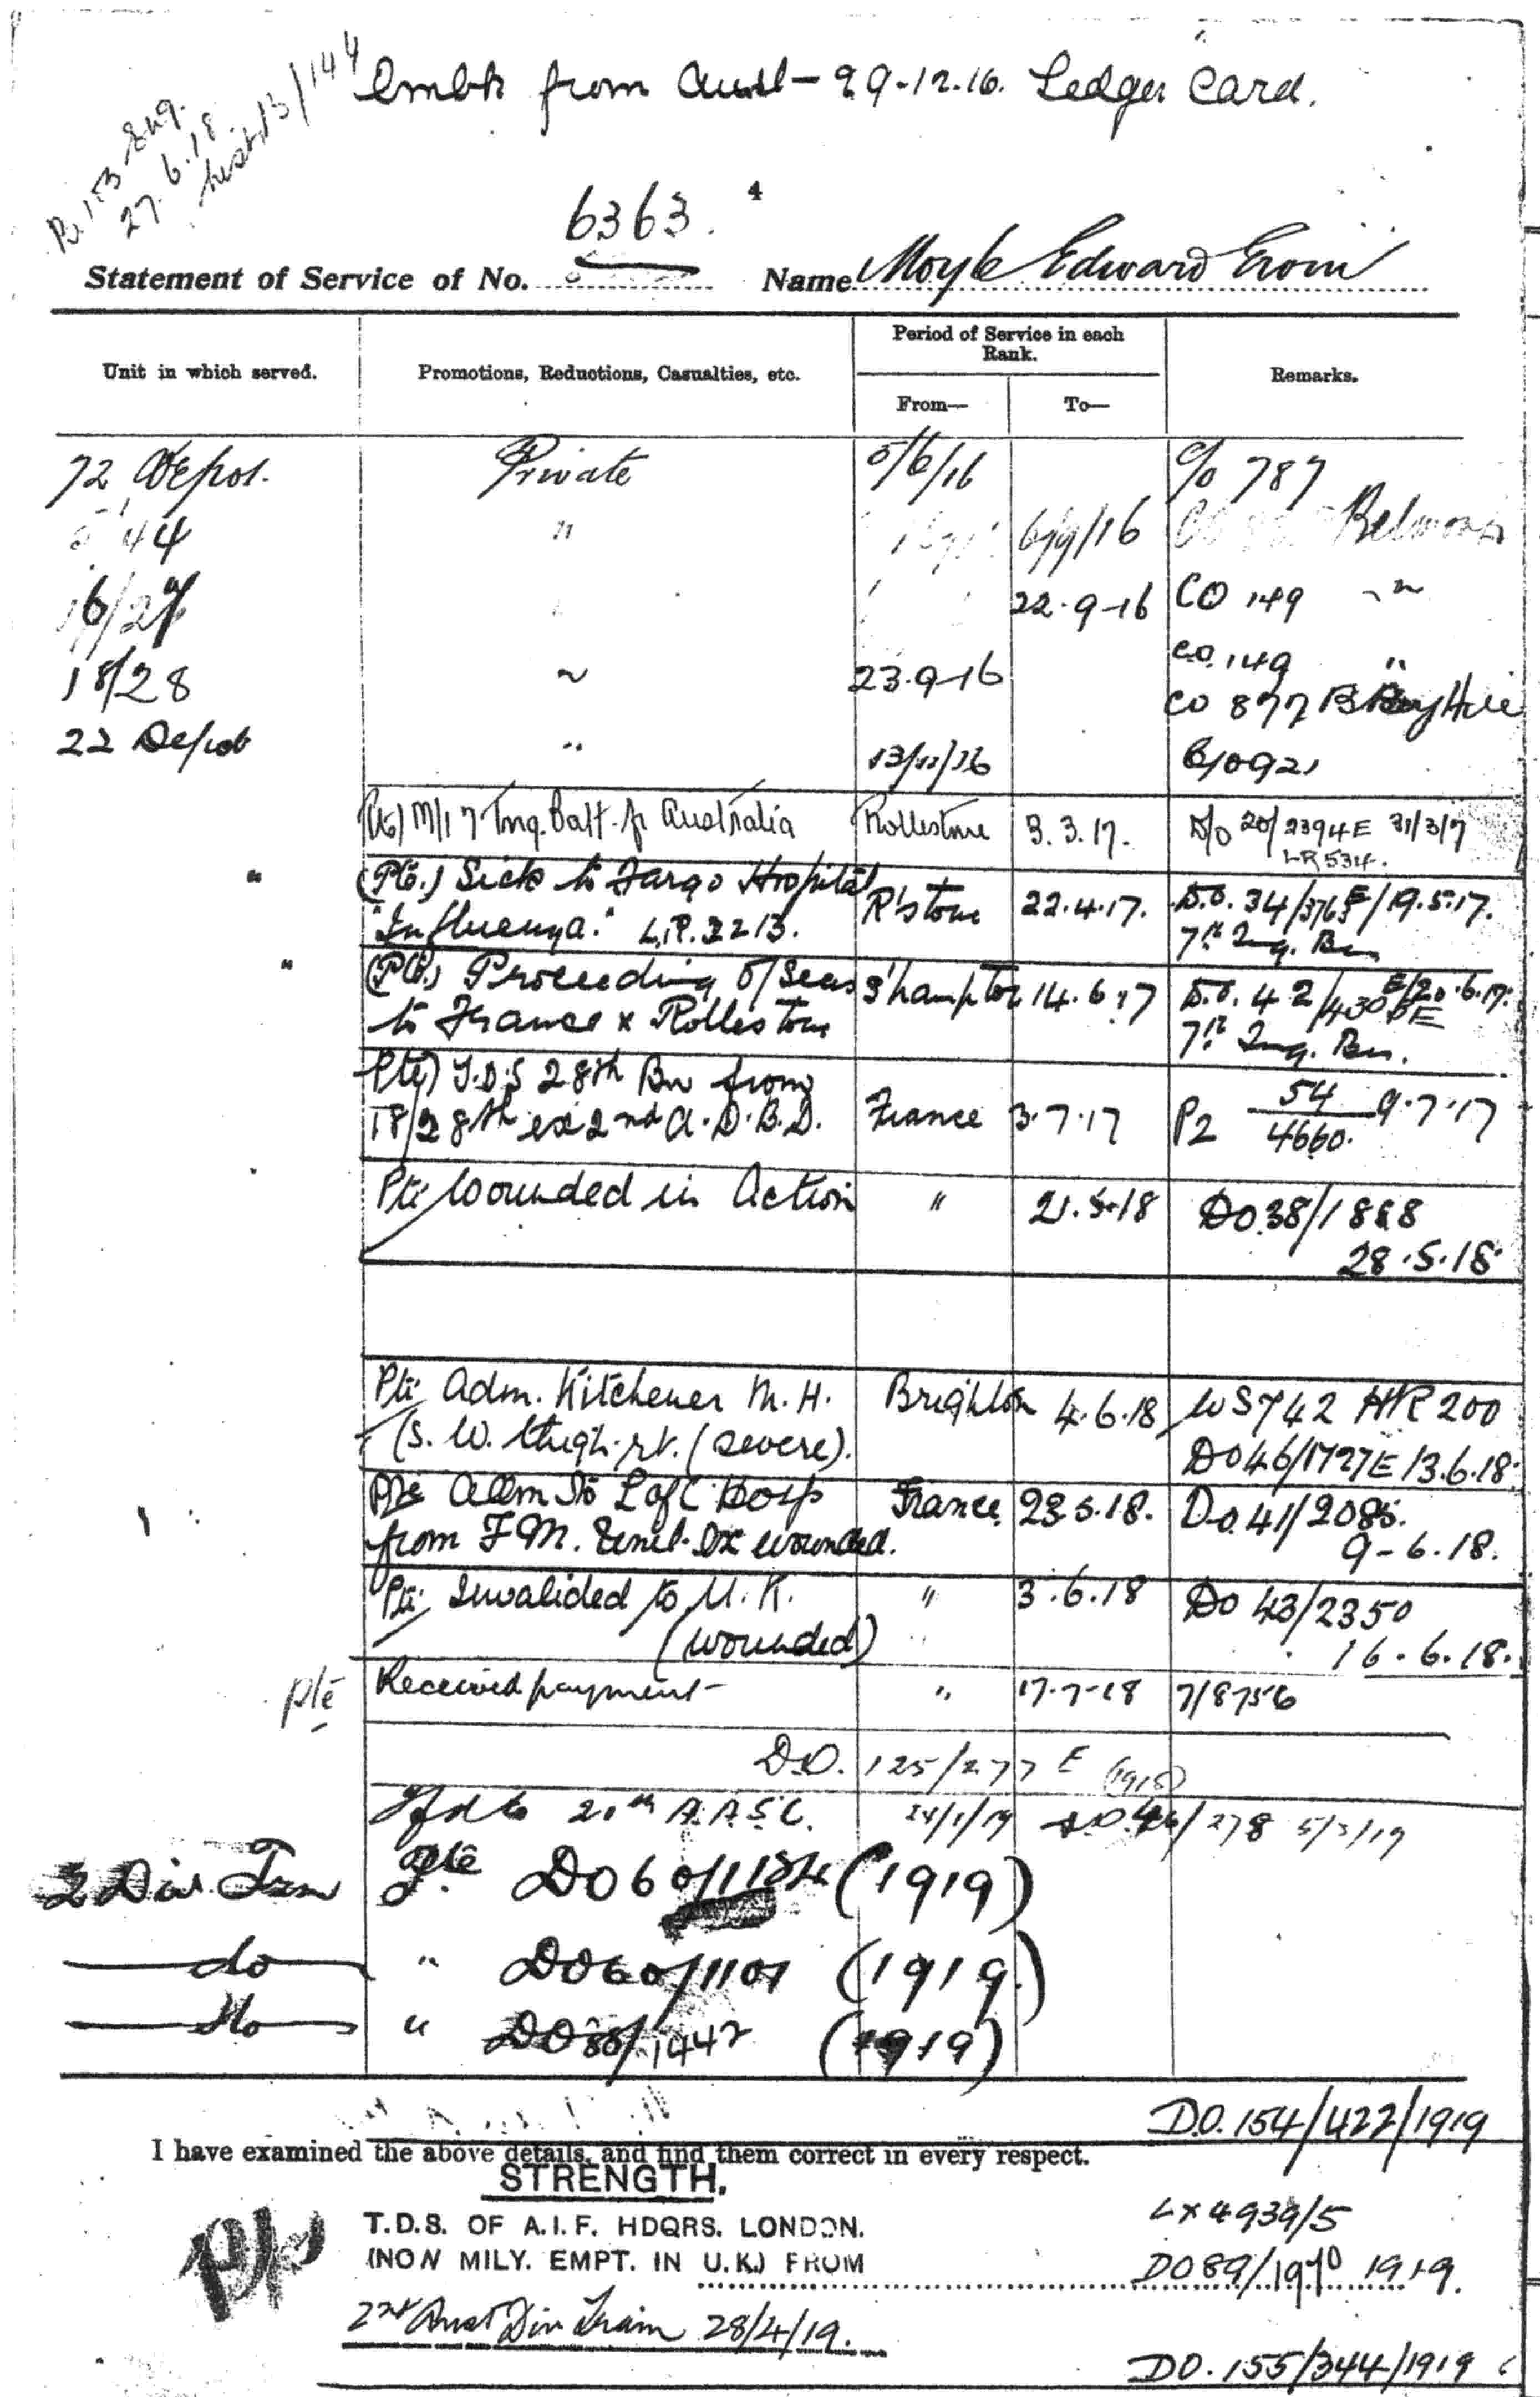 Embk from Aust - 29.12.16. Ledger Card.
27.6.18.
List 13/144
4
6363.
Statement of Service of No. Name Moyle Edward
Period of Service in each Rank.
Unit in which served. Promotions, Reductions, Casualties, etc. Remarks.
From— To—
72 Depot. Private 5/6/16 C/o 787
44 " 6/9/16 Belmont
16/27 22.9.16 CO 149 "
18/28 " 23.9.16 CO. 149 "
CO 877 B
22 Depot " 13/11/16
(Pte) M/I 7 Tng. Batt. fr Australia Rollestone 3.3.17. D/O 20/2394E 31/3/7
LR 534.
" (Pte.) Sick to Fargo Hospital R'stone 22.4.17. D.O. 34/3763E/19.5.17.
"Influenza." L.R. 2213. 7th Tng. Bn
" (Pte.) Proceeding O/Seas S'hampton 14.6.17 D.O. 42/430 E/20.6.17.
to France x Rollestone 7th Tng. Bn.
Pte) T.O.S 28th Bn from France 3.7.17 P2 54/4660. 9.7.17
18/28th ex 2nd A.D.B.D.
Pte Wounded in Action " 21.5.18 DO.38/1888
28.5.18.
Pte Adm. Kitchener M.H. Brighton 4.6.18 WS742 HR 200
(S.W. thigh. rt. (severe). DO46/1727E/13.6.18.
Pte Adm to L of C Hosp France 23.5.18. Do.41/2085.
from F.M. Unit. Ex wounded. 9-6.18.
Pte Invalided to U.K. " 3.6.18 Do 43/2350
(wounded) 16.6.18.
Pte Received payment " 17-7-18 7/8756
D.O. 125/277 E (1918)
Tfd to 20th A.A.S.C. 24/1/19 278 5/3/19
2 Div. Trn Pte DO 60/1184 (1919)
do " DO60/1101 (1919.)
do " DO 1442 (1919)
D.O. 154/422/1919
I have examined the above details, and find them correct in every respect.
STRENGTH.
T.D.S. OF A.I.F. HDQRS. LONDON. LX 4939/5
(NON MILY. EMPT. IN U.K.) FROM DO89/1970 1919.
2nd Aust Div Train 28/4/19.
DO. 155/344/1919